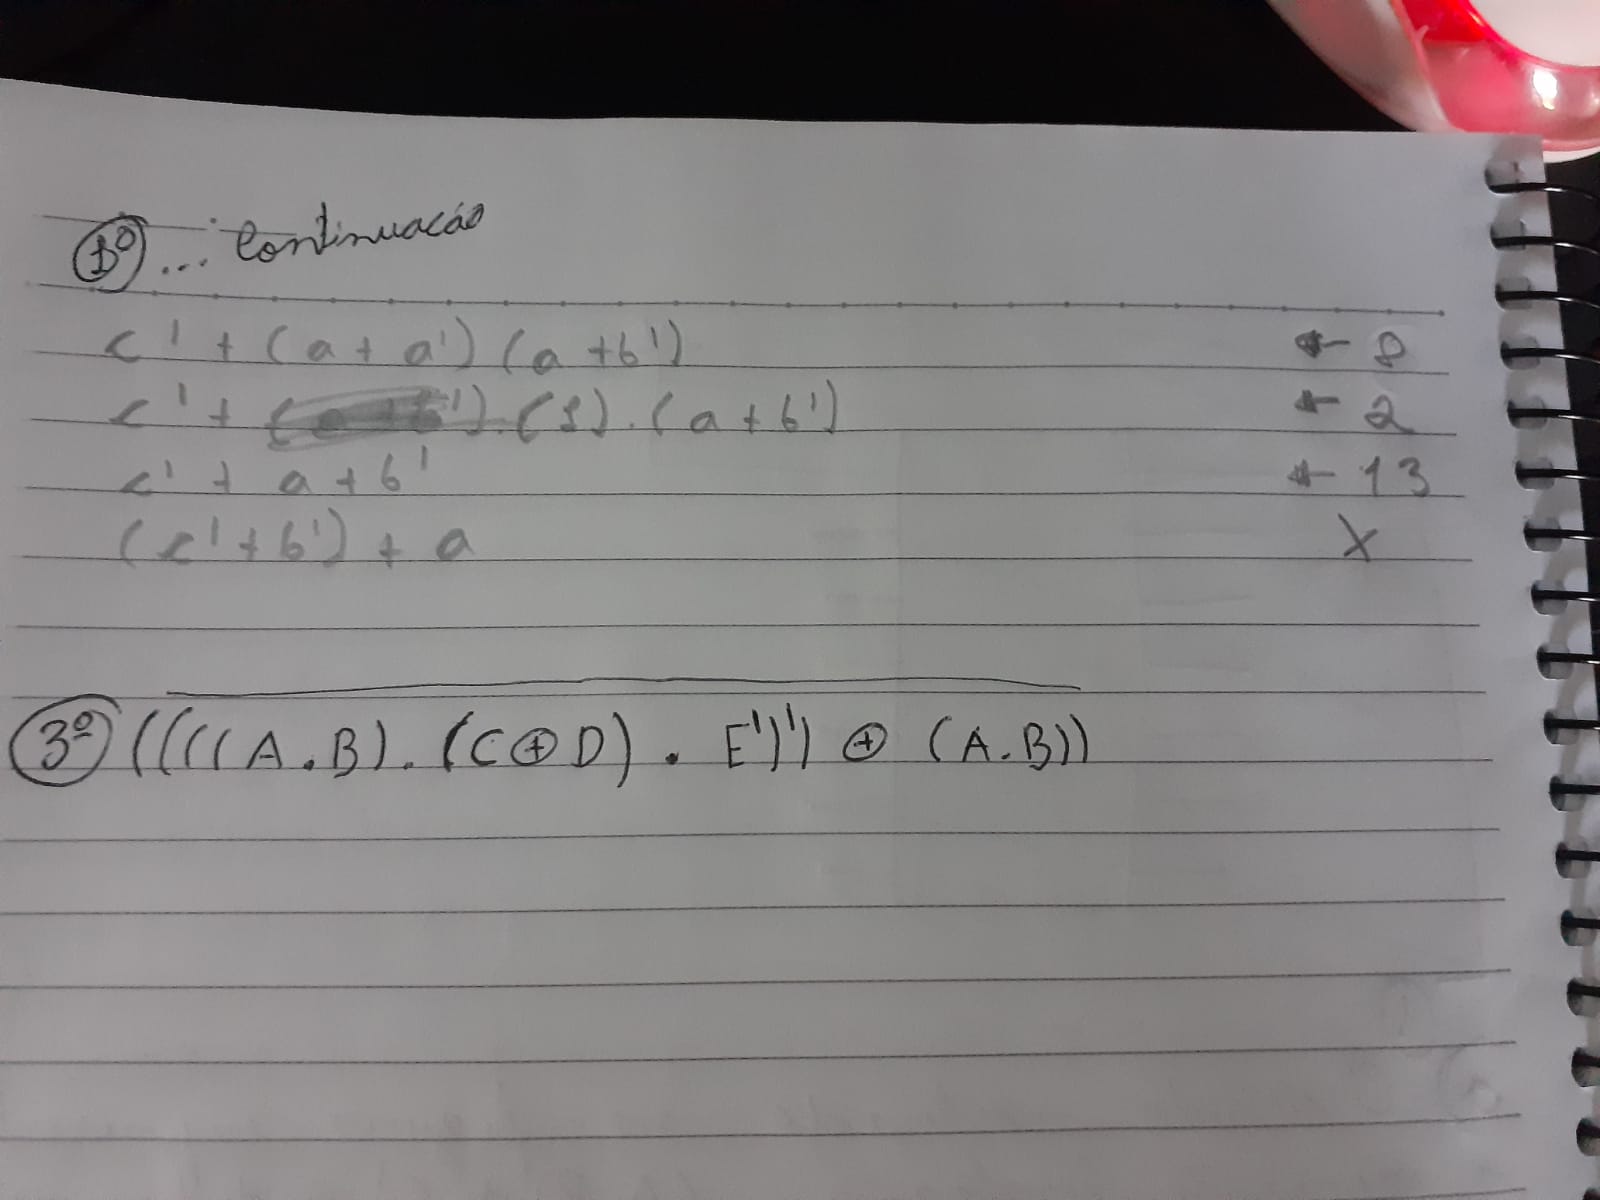 1º ... Continuacáo
c' + (a + a') (a + b') ← 8
c' + . (1) . (a + b') ← 2
c' + a + b' ← 13
(c' + b') + a X
3º ((((A.B).(C⊕D).E')')⊕(A.B))